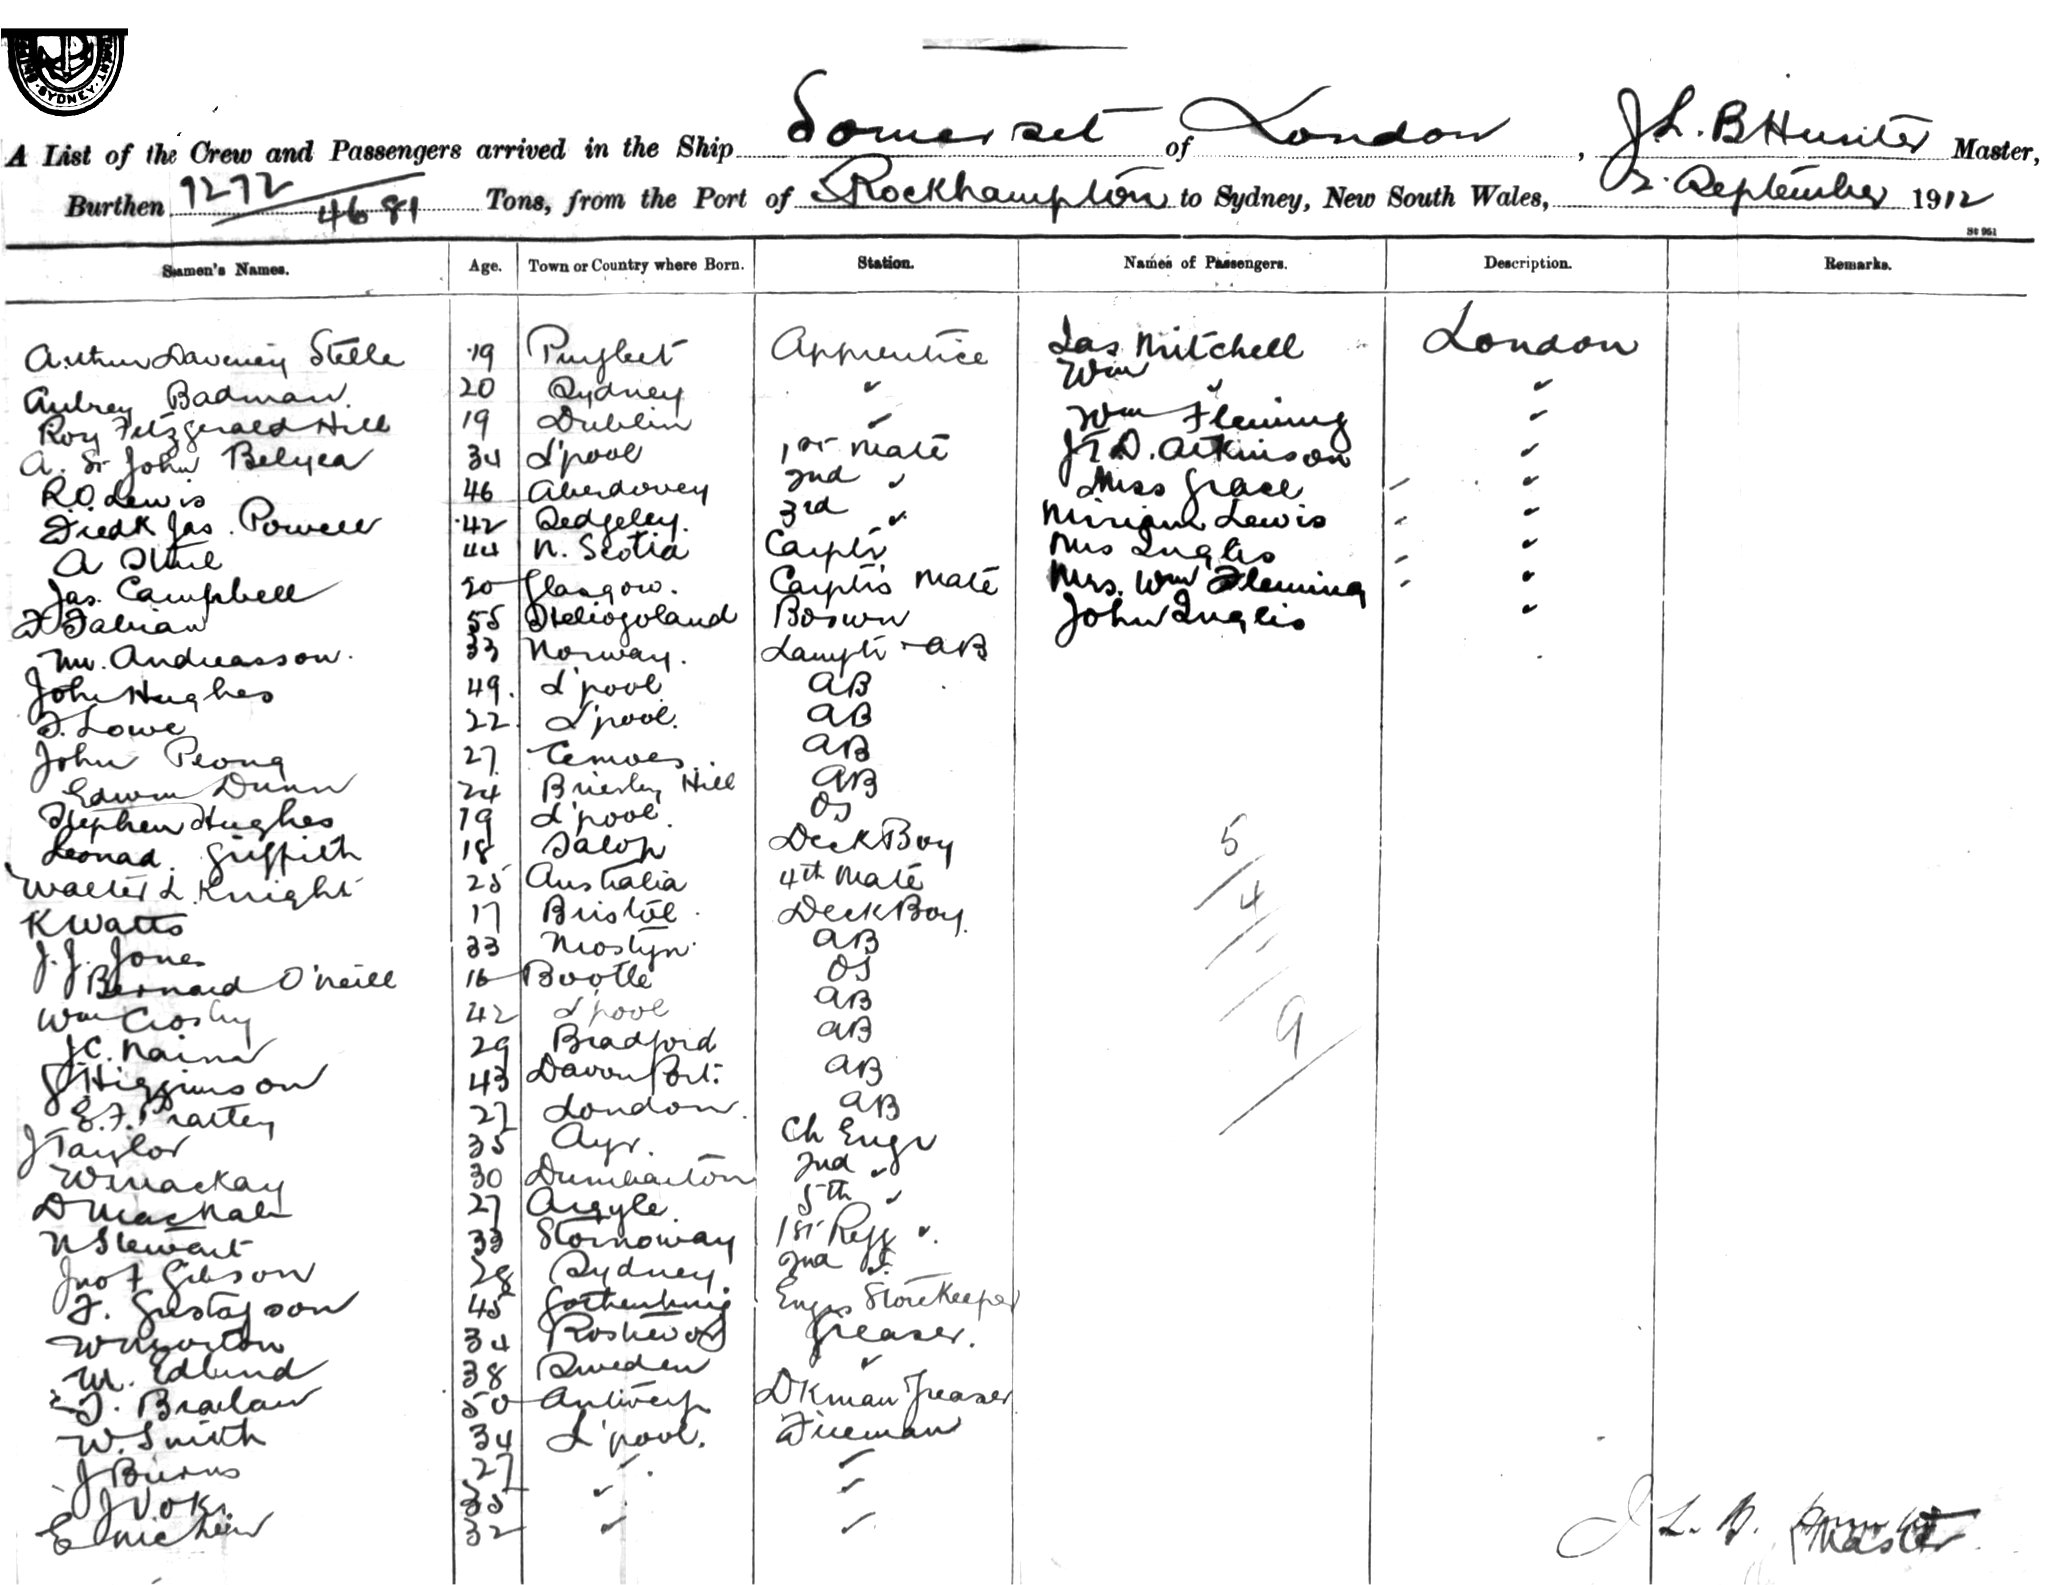 SYDNEY
A List of the Crew and Passengers arrived in the Ship Somerset of London, J. L. B Hunter Master,
Burthen 7272 / 4681 Tons, from the Port of Rockhampton to Sydney, New South Wales, 2. September 1912
St 951
Seamen's Names. Age. Town or Country where Born. Station. Names of Passengers. Description. Remarks.
Arthur Daveney Stelle 19 Apprentice Jas Mitchell London
Aubrey Badman. 20 Sydney " Wm " "
Roy Fitzgerald Hill 19 Dublin " Wm Fleming "
A. St John Belyea 34 L'pool 1st Mate J T. D. Atkinson "
R. O. Lewis 46 Aberdovey 2nd " Miss Grace "
Fredk Jas. Powell 42 Sedgeley. 3rd " Miriam Lewis "
A 44 N. Scotia Carptr Mrs Inglis "
Jas. Campbell 20 Glasgow. Carptr's Mate Mrs. Wm Fleming "
F Fabian 55 Heliogoland Boswn John Inglis "
Andreasson. 33 Norway. Lamptr - AB
John Hughes 49. L'pool AB
F. Lowe 22 L'pool. AB
John 27 Cemaes. AB
Edwin Dunn 24 Brierley Hill AB
Stephen Hughes 19 L'pool. OS
Leonad. Griffith 18 Salop Deck Boy
Walter L. Knight 25 Australia 4th Mate
K Watts 17 Bristol. Deck Boy.
J. J. Jones 33 Mostyn. AB
Bernard O'Neill 16 Bootle OS
Wm Crosby 42 L'pool AB
J C. 29 Bradford AB
J Higginson 43 Davonport. AB
E. F. 27 London. AB
J Taylor 35 Ayr. Ch Engr
W Mackay 30 Dumbarton 2nd "
D 27 Argyle. 5th "
N Stewart 33 Stornoway 1st Refg ".
Jno F Gibson 28 Sydney. 2nd "
F. Gustafson 45 Gothenburg Engrs Storekeeper
W Morton 34 Greaser.
M. Edlund 38 Sweden "
50 Antwerp Dkman Greaser
W. Smith 34 L'pool. Fireman
J Burns 27 " "
J 35 " "
E 32 " "
5
4
9
J. L. B. Hunter
Master